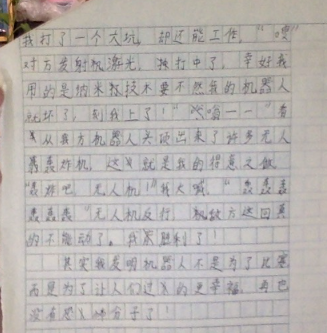 我打了一个大坑，却还能工作。“嗖”
对方发射激光，打中了，幸好我
用的是纳米科技不要不然我的机器人
就坏了，到我上了！”“嗡——”看
从我方机器人头顶出来了许多无人
轰炸机，这就是我的得意之做
“轰炸吧！无人机！”我大喊，“轰轰轰
轰轰轰”无人机反行，方这回真
的不能动了。我胜利了！
其实我发明机器人不是为了比赛
而是为了让人们过的更幸福，再也
没有恐分子了！